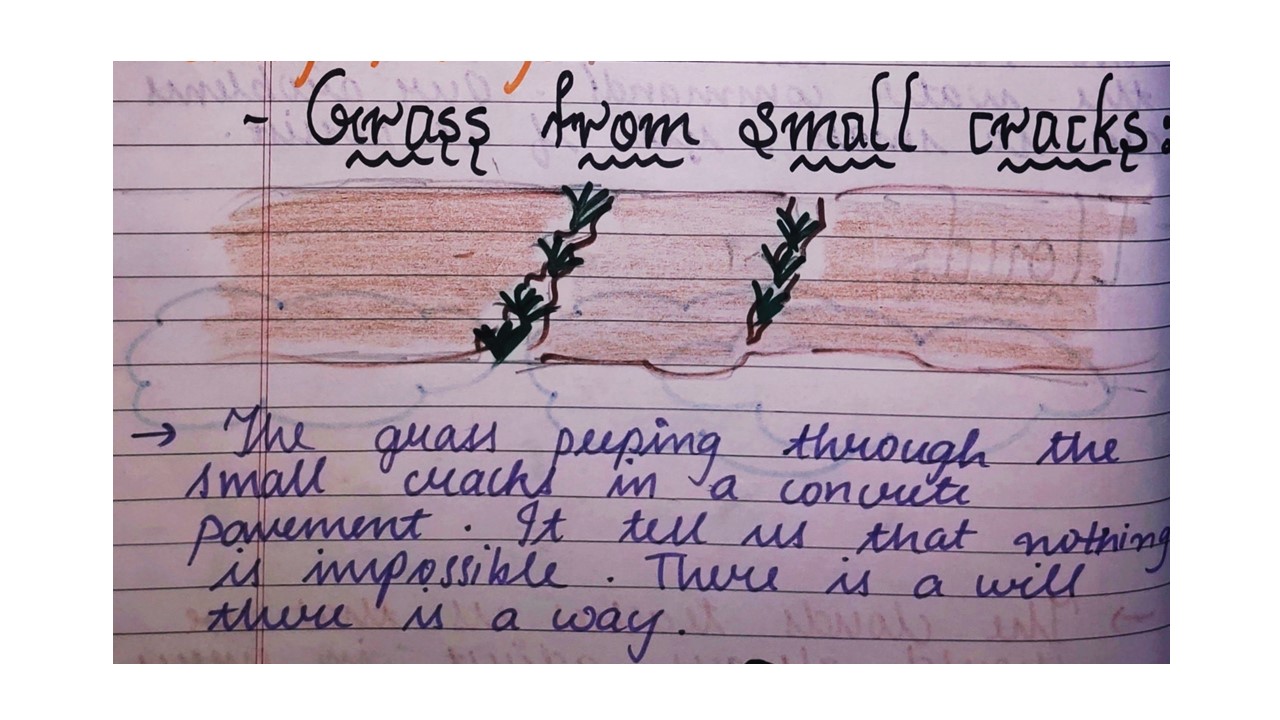 - Grass from small cracks:
→ The grass peeping through the
small cracks in a concrete
pavement. It tell us that nothing
is impossible. There is a will
there is a way.